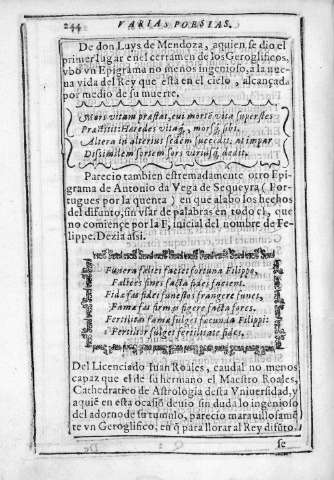 244 VARIAS POESIAS.
De don Luys de Mendoza, a quien se dio el
primer lugar en el certamen de los Geroglificos,
vbo vn Epigrama no menos ingenioso, a la nue-
ua vida del Rey que està en el cielo, alcançada
por medio de su muerte.
Mors vitam præstat, cui mortē vita superstes
Præstitit: Hæredes vitaq́, morsq́ sibi.
Altera in alterius sedem succedit, at impar
Dissimilem sortem sors vtriusq́ dedit.
Parecio tambien estremadamente otro Epi-
grama de Antonio da Vega de Sequeyra (Por-
tugues por la quenta) en que alabo los hechos
del difunto, sin vsar de palabras en todo el, que
no comiençe por la F, inicial del nombre de Fe-
lippe. Dezia assi.
Funera fælici faciet fortuna Filippe,
Fælices fines facta fides facient.
Fidæ fas fides funestos frangere funes,
Famæ fas firmo figere facta fores.
Fertilitas famæ fulget facunda Filippi
Fertiliter fulget fertilitate fides.
Del Licenciado Iuan Roales, caudal no menos
capaz que el de su hermano el Maestro Roales,
Cathedratico de Astrologia desta Vniuersidad, y
a quiē en esta ocasiō deuio sin duda lo ingenioso
del adorno de su tumulo, parecio marauillosamē
te vn Geroglifico, en q̄ para llorar al Rey difūto,
se